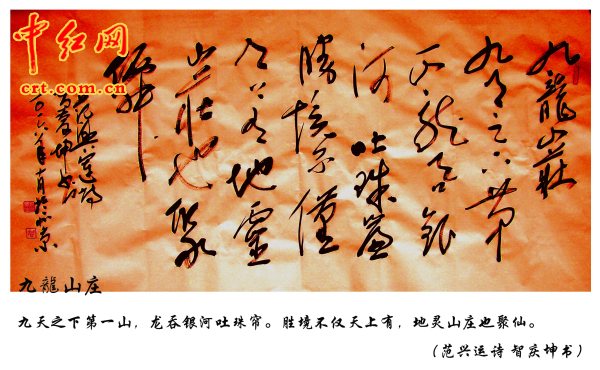 中红网
crt.com.cn
九龍山莊
九天之下第
一山龙吞銀
河吐珠簾
勝境不僅
天上有地靈
山莊也聚
仙
范興運詩
智慶坤书
九龍山庄
九天之下第一山，龙吞银河吐珠帘。胜境不仅天上有，地灵山庄也聚仙。
（范兴运诗 智庆坤书）